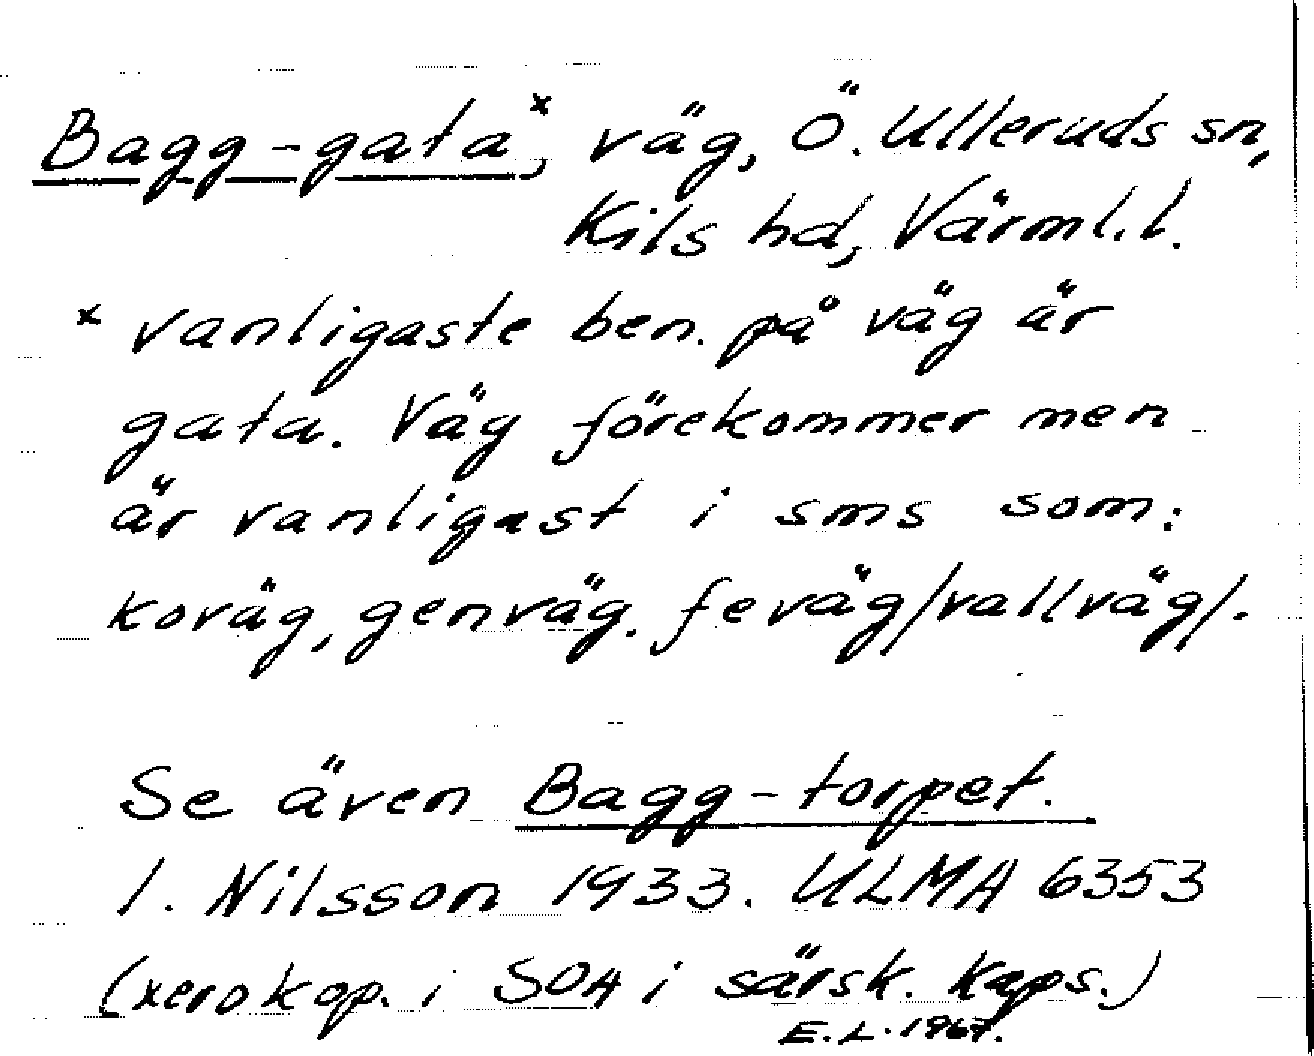 Bagg-gata*, väg, Ö. Ulleruds sn,
Kils hd, Värml. l.
* vanligaste ben. på väg är
gata. Väg förekommer men
är vanligast i sms som:
koväg, genväg. feväg/vallväg/.
Se även Bagg-torpet.
I. Nilsson 1933. ULMA 6353
(xerokop. i SOA i särsk. kaps.)
E. L. 1967.